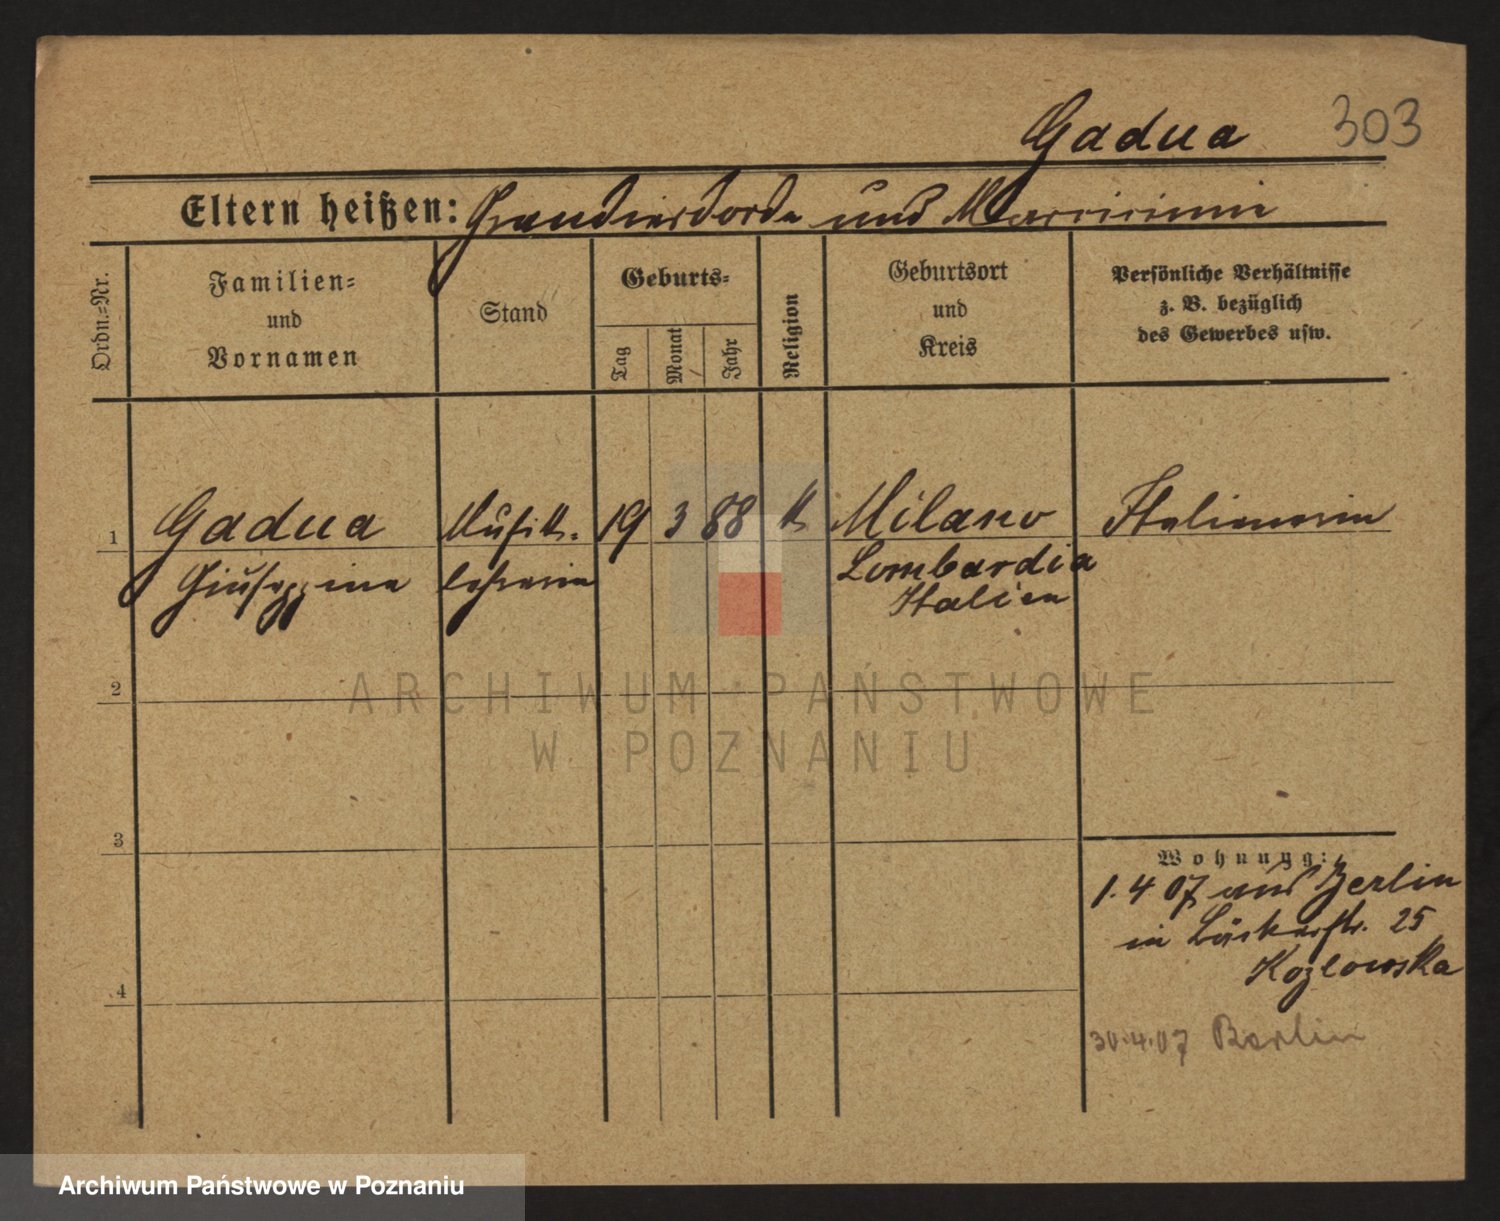 Gadua 303
Eltern heißen: und
Ordn.-Nr.
Familien-
und
Vornamen
Stand
Geburts-
Tag
Monat
Jahr
Religion
Geburtsort
und
Kreis
Persönliche Verhältnisse
z. B. bezüglich
des Gewerbes usw.
1 Gadua Musik- 19 3 88 k Milano Italienerin
Giuseppina lehrerin Lombardia
Italien
2
ARCHIWUM PAŃSTWOWE
W POZNANIU
3
Wohnung:
1.4.07 aus Berlin
in Bäckerstr. 25
Kozlowska
4
30.4.07 Berlin
Archiwum Państwowe w Poznaniu